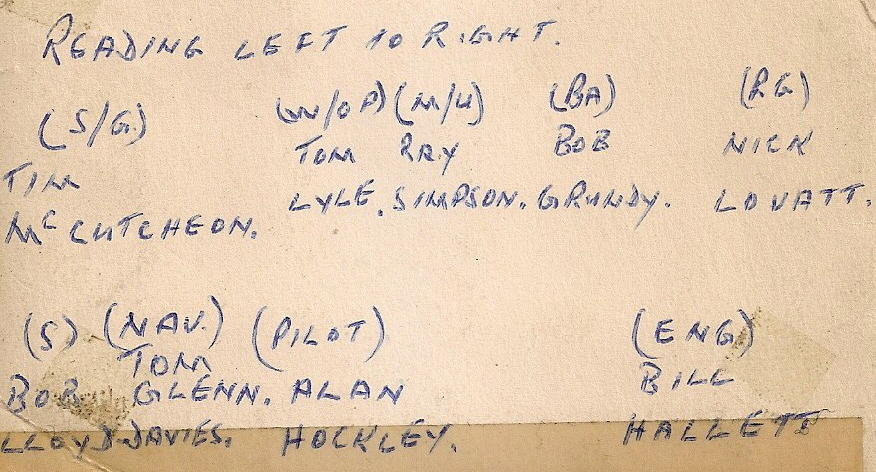 READING LEFT TO RIGHT.
(S/G) (W/OP) (M/U) (BA) (RG)
TIM TOM RAY BOB NICK
McCUTCHEON. LYLE. SIMPSON. GRUNDY. LOVATT.
(S) (NAV.) (PILOT) (ENG)
BOB TOM GLENN. ALAN BILL
LLOYD-DAVIES. HOCKLEY. HALLETT